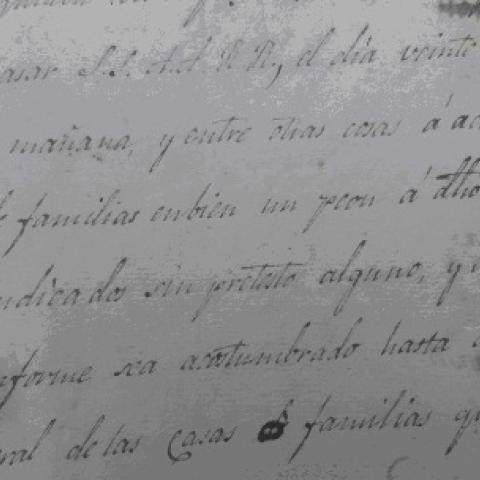 asar S.S. A.A. R.R., el dia veinte
mañana, y entre otras cosas á ac
familias enbien un peon á dho
ndicados sin pretesto alguno, y
nforme sea acostumbrado hasta
ral de las Casas familias q